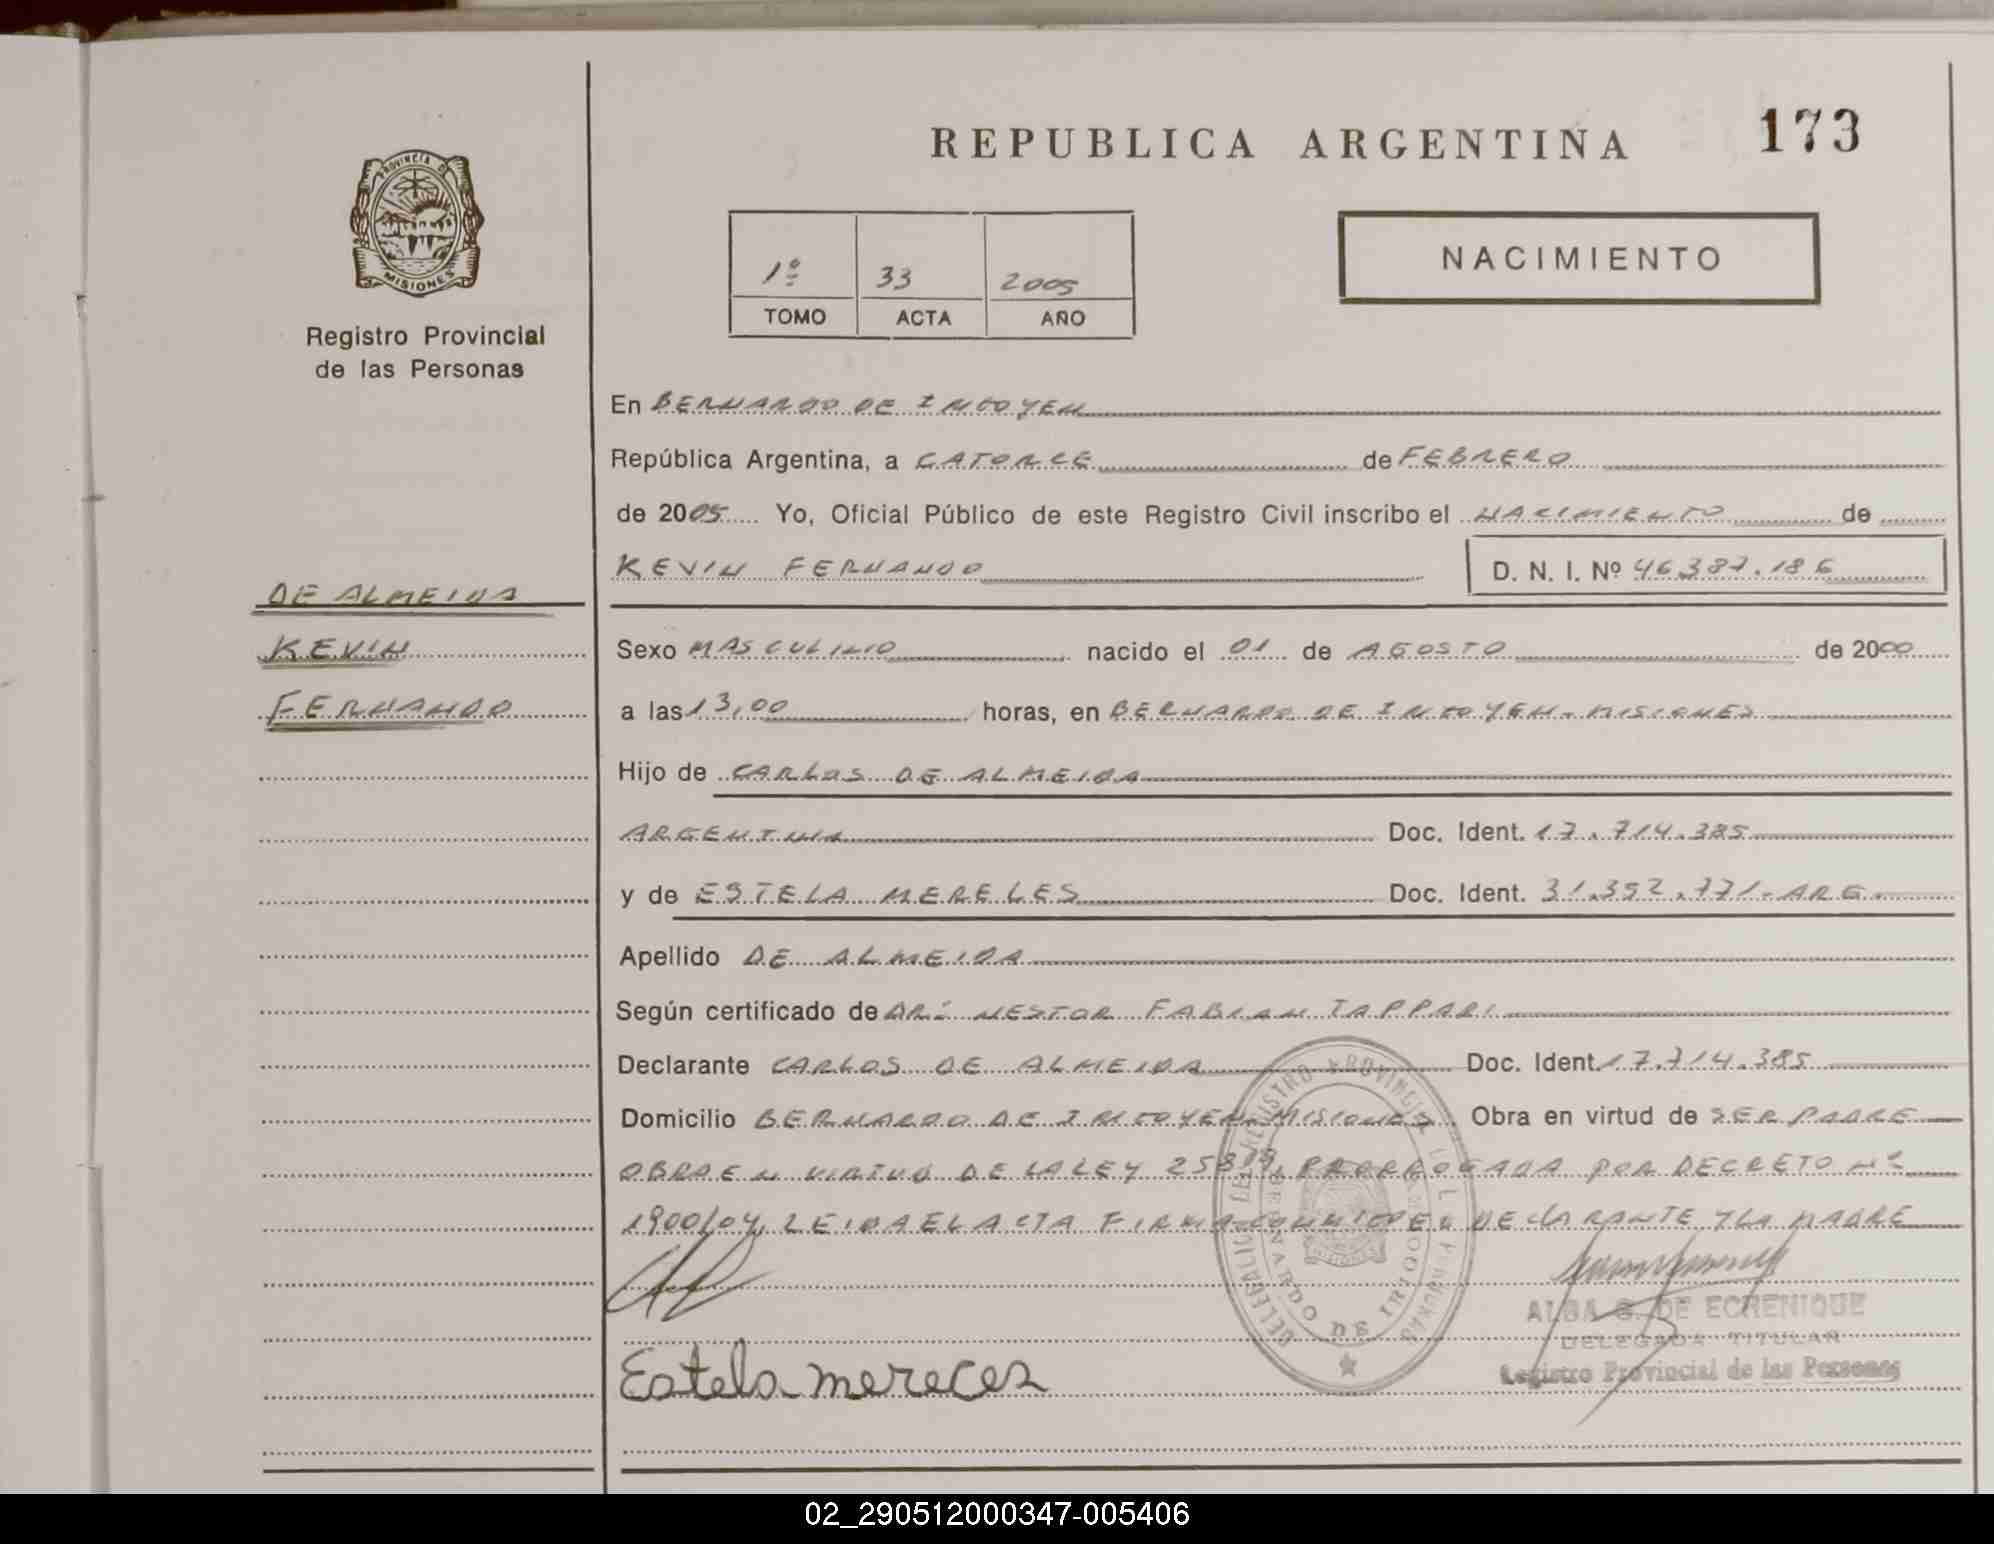 REPUBLICA ARGENTINA 173
PROVINCIA DE
MISIONES
Registro Provincial
de las Personas
1º 33 2005
TOMO ACTA AÑO
NACIMIENTO
En BERNARDO DE IRIGOYEN
República Argentina, a CATORCE de FEBRERO
de 2005 Yo, Oficial Público de este Registro Civil inscribo el NACIMIENTO de
KEVIN FERNANDO D. N. I. Nº 46.387.186
DE ALMEIDA
KEVIN
FERNANDO
Sexo MASCULINO nacido el 01 de AGOSTO de 2000
a las 13,00 horas, en BERNARDO DE IRIGOYEN - MISIONES
Hijo de CARLOS DE ALMEIDA
ARGENTINA Doc. Ident. 17.714.385
y de ESTELA MERELES Doc. Ident. 31.352.771 - ARG.
Apellido DE ALMEIDA
Según certificado de DR: NESTOR FABIAN TAPPARI
Declarante CARLOS DE ALMEIDA Doc. Ident. 17.714.385
Domicilio BERNARDO DE IRIGOYEN - MISIONES Obra en virtud de SER PADRE
OBRA EN VIRTUD DE LA LEY 25819, PRORROGADA POR DECRETO Nº
1900/04, LEIDA EL ACTA FIRMA CONMIGO EL DECLARANTE Y LA MADRE
Estela mereles
DELEGACION DEL REGISTRO PROVINCIAL DE LAS PERSONAS
BERNARDO DE IRIGOYEN
ALBA G. DE ECHENIQUE
DELEGADA TITULAR
Registro Provincial de las Personas
02_290512000347-005406